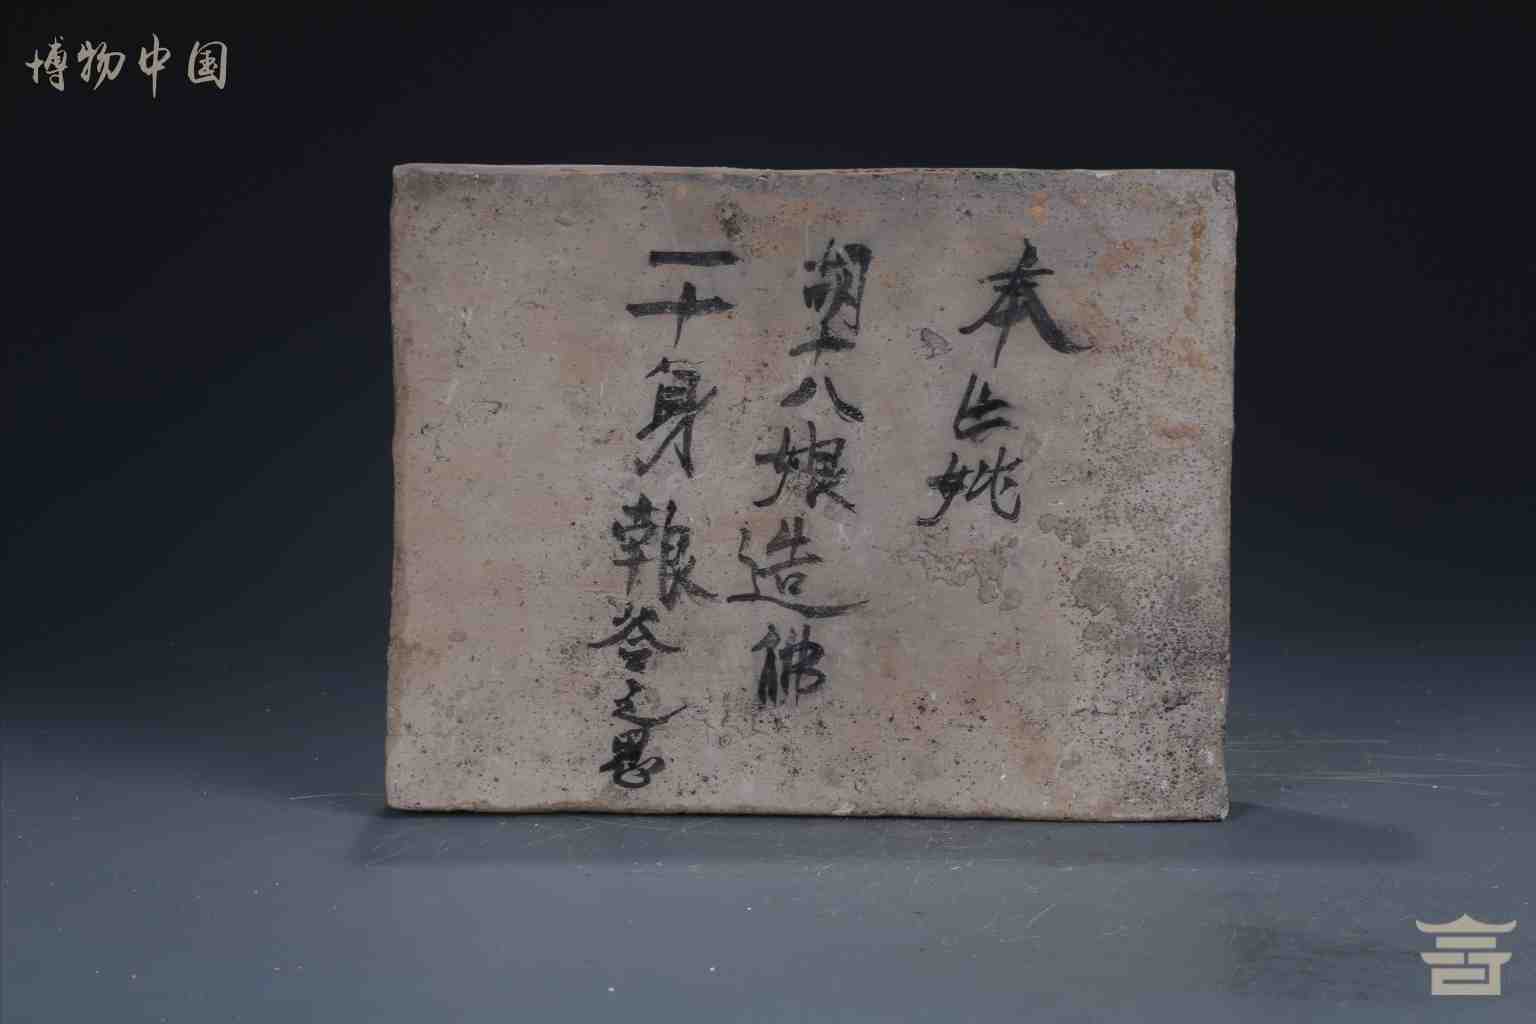 博物中国
奉上姚
朝十八娘造佛
一十身報答之恩